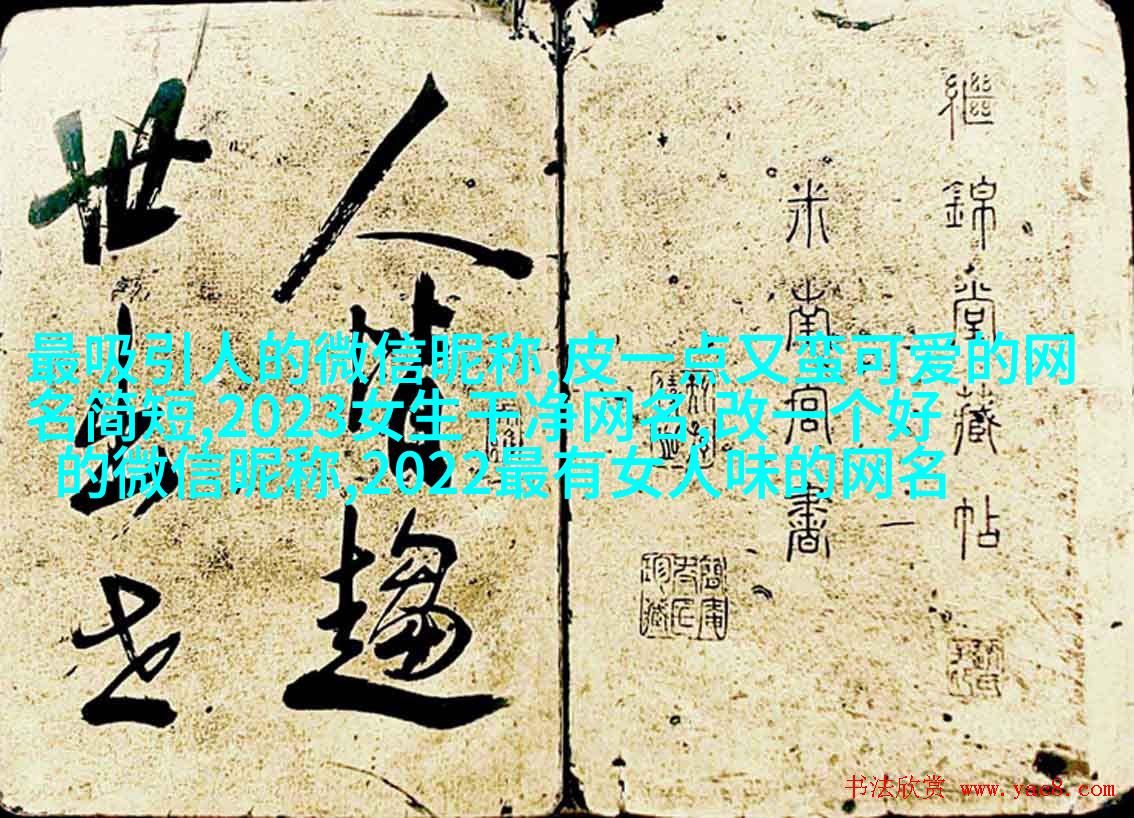 繼錦堂藏帖
米南宮書
人趨
世
最吸引人的微信昵称,皮一点又蛮可爱的网
名简短,2023女生干净网名,改一个好
的微信昵称,2022最有女人味的网名
书法欣赏 www.yac8.com